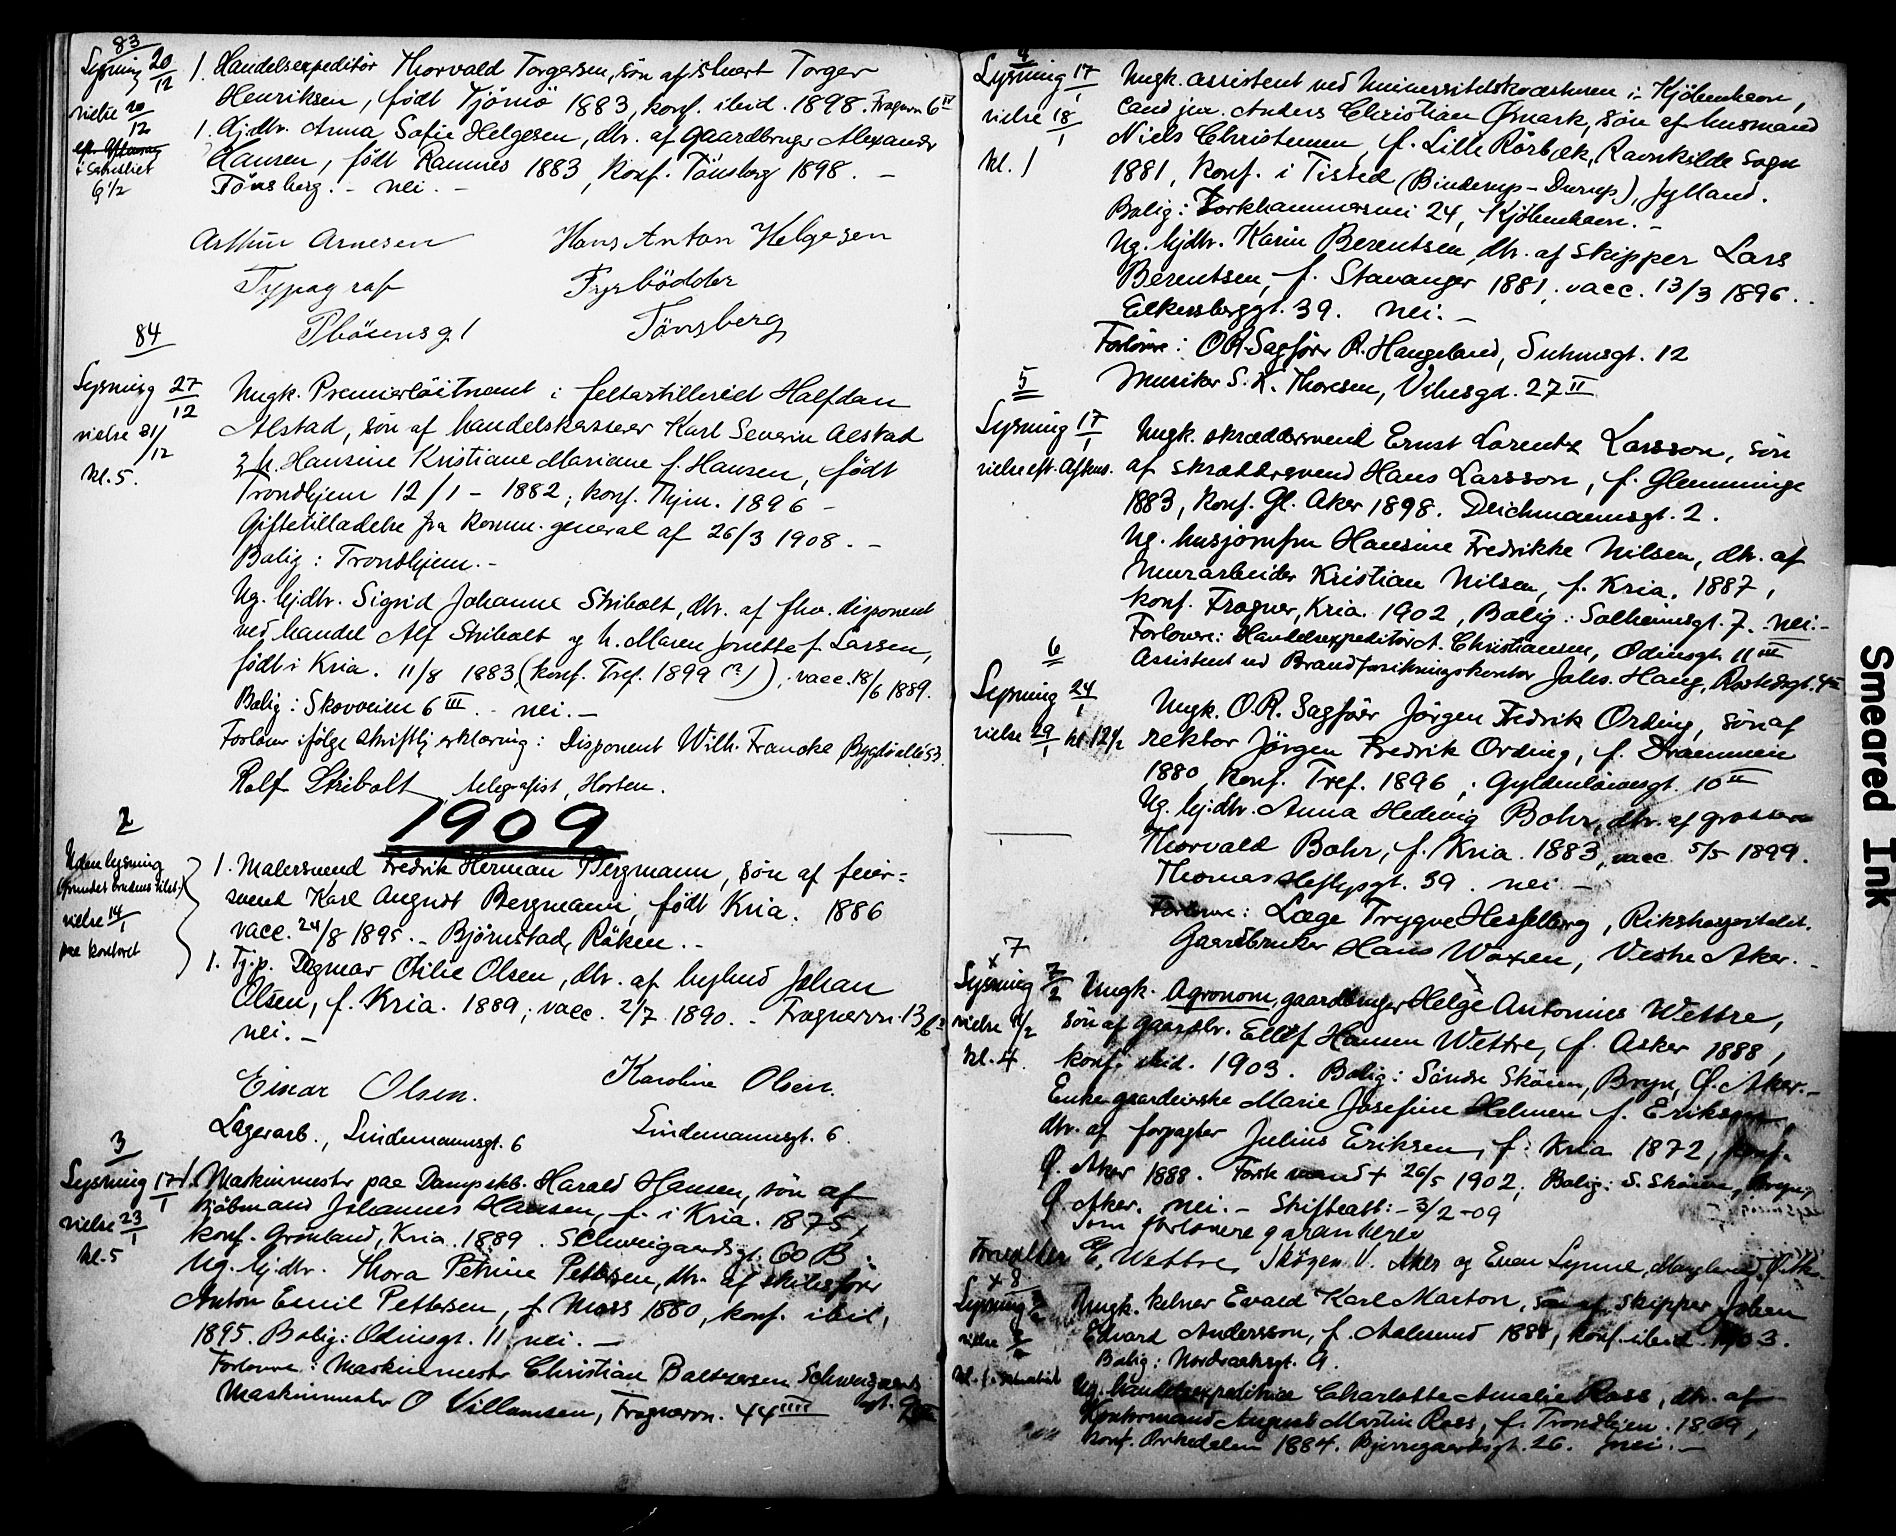 83
Lysning 20/12
vielse 20/12
eft. Aftensang
i Sakristiet
6 1/2
1. Handelsexpeditör Thorvald Torgersen, sön af Torger
Henriksen, født Tjömö 1883, konf. ibid. 1898. Fragnern 6 IV
1. Hj.dtr. Anna Sofie Helgesen, dtr. af gaardbruger Alexander
Hansen, født Ramnes 1883, konf. Tönsberg 1898. –
Tönsberg. – nei. –
Arthur Arnesen
Typograf
Hans Anton Helgesen
Fyrbödder
Tönsberg
84
Lysning 27/12
vielse 31/12
kl. 5.
Ungk. Premierlöitnant i feltartilleriet Halfdan
Alstad, sön af handelskasserer Karl Severin Alstad
& h. Hansine Kristiane Mariane f. Hansen, født
Trondhjem 12/1 – 1882; konf. Thjm. 1896 –
Giftetilladelse fra komm. general af 26/3 1908. –
Bolig: Trondhjem. –
Ug. hj.dtr. Sigrid Johanne Stribolt, dtr. af fhv. disponent
ved handel Alf Stribolt og h. Maren Jonette f. Larsen,
født i Kria. 11/8 1883, (konf. Tref. 1899 (?)); vacc. 18/6 1889.
Bolig: Skovveien 6 III. – nei. –
Forlover ifölge skriftlig erklæring: Disponent Wilh. Francke Bygdöallé 53.
Rolf Stribolt, telegrafist, Horten.
1909
2
Uden lysning
(grundet brudens tilst.)
vielse 14/1
paa kontoret
1. Malersvend Fredrik Herman Bergmann, sön af feier=
svend Karl August Bergmann, født Kria. 1886
vacc. 24/8 1895. – Björnstad, Röken. –
1. Tj.p. Dagmar Otilie Olsen, dtr. af bybud Johan
Olsen, f. Kria. 1889; vacc. 2/7 1890. – Fragnervn. 13
nei. –
Einar Olsen.
Lagerarb., Lindemannsgt. 6
Karoline Olsen.
Lindemannsgt. 6.
3
Lysning 17/1
vielse 23/1
kl. 5
1. Maskinmester paa Dampskb. Harald Hansen, sön af
kjöbmand Johannes Hansen, f. i Kria. 1875,
konf. Grönland, Kria. 1889. Schweigaardsgt. 60 B.
Ug. hj.dtr. Thora Petrine Pettersen, dtr. af skibsförer
Anton Emil Pettersen, f. Moss 1880, konf. ibid,
1895. Bolig: Odinsgt. 11, nei. –
Forlovere: Maskinmester Christian Baltzersen Schweigaards
gt.
Maskinmester O Villumsen, Fragnervn. 44 IIII
4
Lysning 17/1
vielse 18/1
kl. 1
Ungk. assistent ved Universitetskvæsturen i Kjöbenhavn,
cand jur. Anders Christian Ömark, sön af husmand
Niels Christensen, f. Lille Rörbæk, Ravnkilde Sogn
1881, konf. i Tisted (Binderup-Durup), Jylland.
Bolig: Forkhammersvei 24, Kjöbenhavn. –
Ug. hj.dtr. Karin Berentsen, dtr. af skipper Lars
Berentsen, f. Stavanger 1881; vacc. 13/3 1896. –
Eilertsberggt. 39. nei. –
Forlovere: O.R. Sagförer R. Haugeland, Suhmsgt. 12
Musiker S. K. Thoresen, Vibesgd. 27 II
5
Lysning 17/1
vielse eft. Aftens.
Ungk. skræddersvend Ernst Lorentz Larsson, sön
af skræddersvend Hans Larsson, f. Glemminge
1883, konf. Gl. Aker 1898. Deichmannsgt. 2.
Ug. husjomfru Hansine Fredrikke Nilsen, dtr. af
murarbeider Kristian Nilsen, f. Kria. 1887,
konf. Fragner, Kria. 1902, Bolig: Solheimsgt. 7. nei. –
Forlovere: Handelsexpeditör A. Christiansen, Odinsgt. 11 III
Assistent ved Brandforsikringskontor Johs. Haug,
6
Lysning 24/1
vielse 29/1 kl. 12 1/2
Ungk. O.R. Sagförer Jörgen Fredrik Ording, sön af
rektor Jörgen Fredrik Ording, f. Drammen
1880, konf. Tref. 1896,; Gyldenlövesgt. 10 II
Ug. hj.dtr. Anna Hedevig Bohr, dtr. af grosserer
Thorvald Bohr, f. Kria. 1883, vacc. 5/5 1899.
Thomas Heftyesgt. 39. nei –
Forlovere: Læge Trygve Hesselberg, Rikshospitalet.
Gaardbruker Hans Waxen, Vestre Aker. –
x 7
Lysning 7/2
vielse
kl. 4
Ungk. Agronom, gaardbruger Helge Antonius Wettre,
sön af gaardbr. Ellef Hansen Wettre, f. Asker 1888,
konf. ibid. 1903. Bolig: Söndre Sköien, Bryn, Ö. Aker. –
Enke gaardeierske Marie Josefine Helmen f. Eriksen,
dtr. af forpagter Julius Eriksen, f. Kria 1872, konf.
Ö. Aker 1888. Forrige mand † 26/5 1902; Bolig: S. Sköien, Bryn,
Ö. Aker. nei. – Skifteatt: – 3/2 -09
Som forlovere garanterer
E. Wettre, Skögen V. Aker og Even
x 8
Lysning
vielse
Ungk. kelner Evald Karl Marton, sön af skipper Johan
Edvard Andersson, f. Aalesund 1888, konf. ibid. 1903.
Bolig: Nordraaksgt. 9.
Ug. handelsexpeditrice Charlotte Amalie Ross, dtr. af
Kontormand August Martin Ross, f. Trondhjem. 1869,
konf. Orkedalen 1884. Bjerregaardsgt. 26. nei. –
Smeared Ink